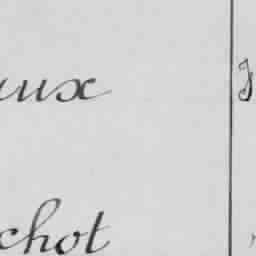 aux
chot